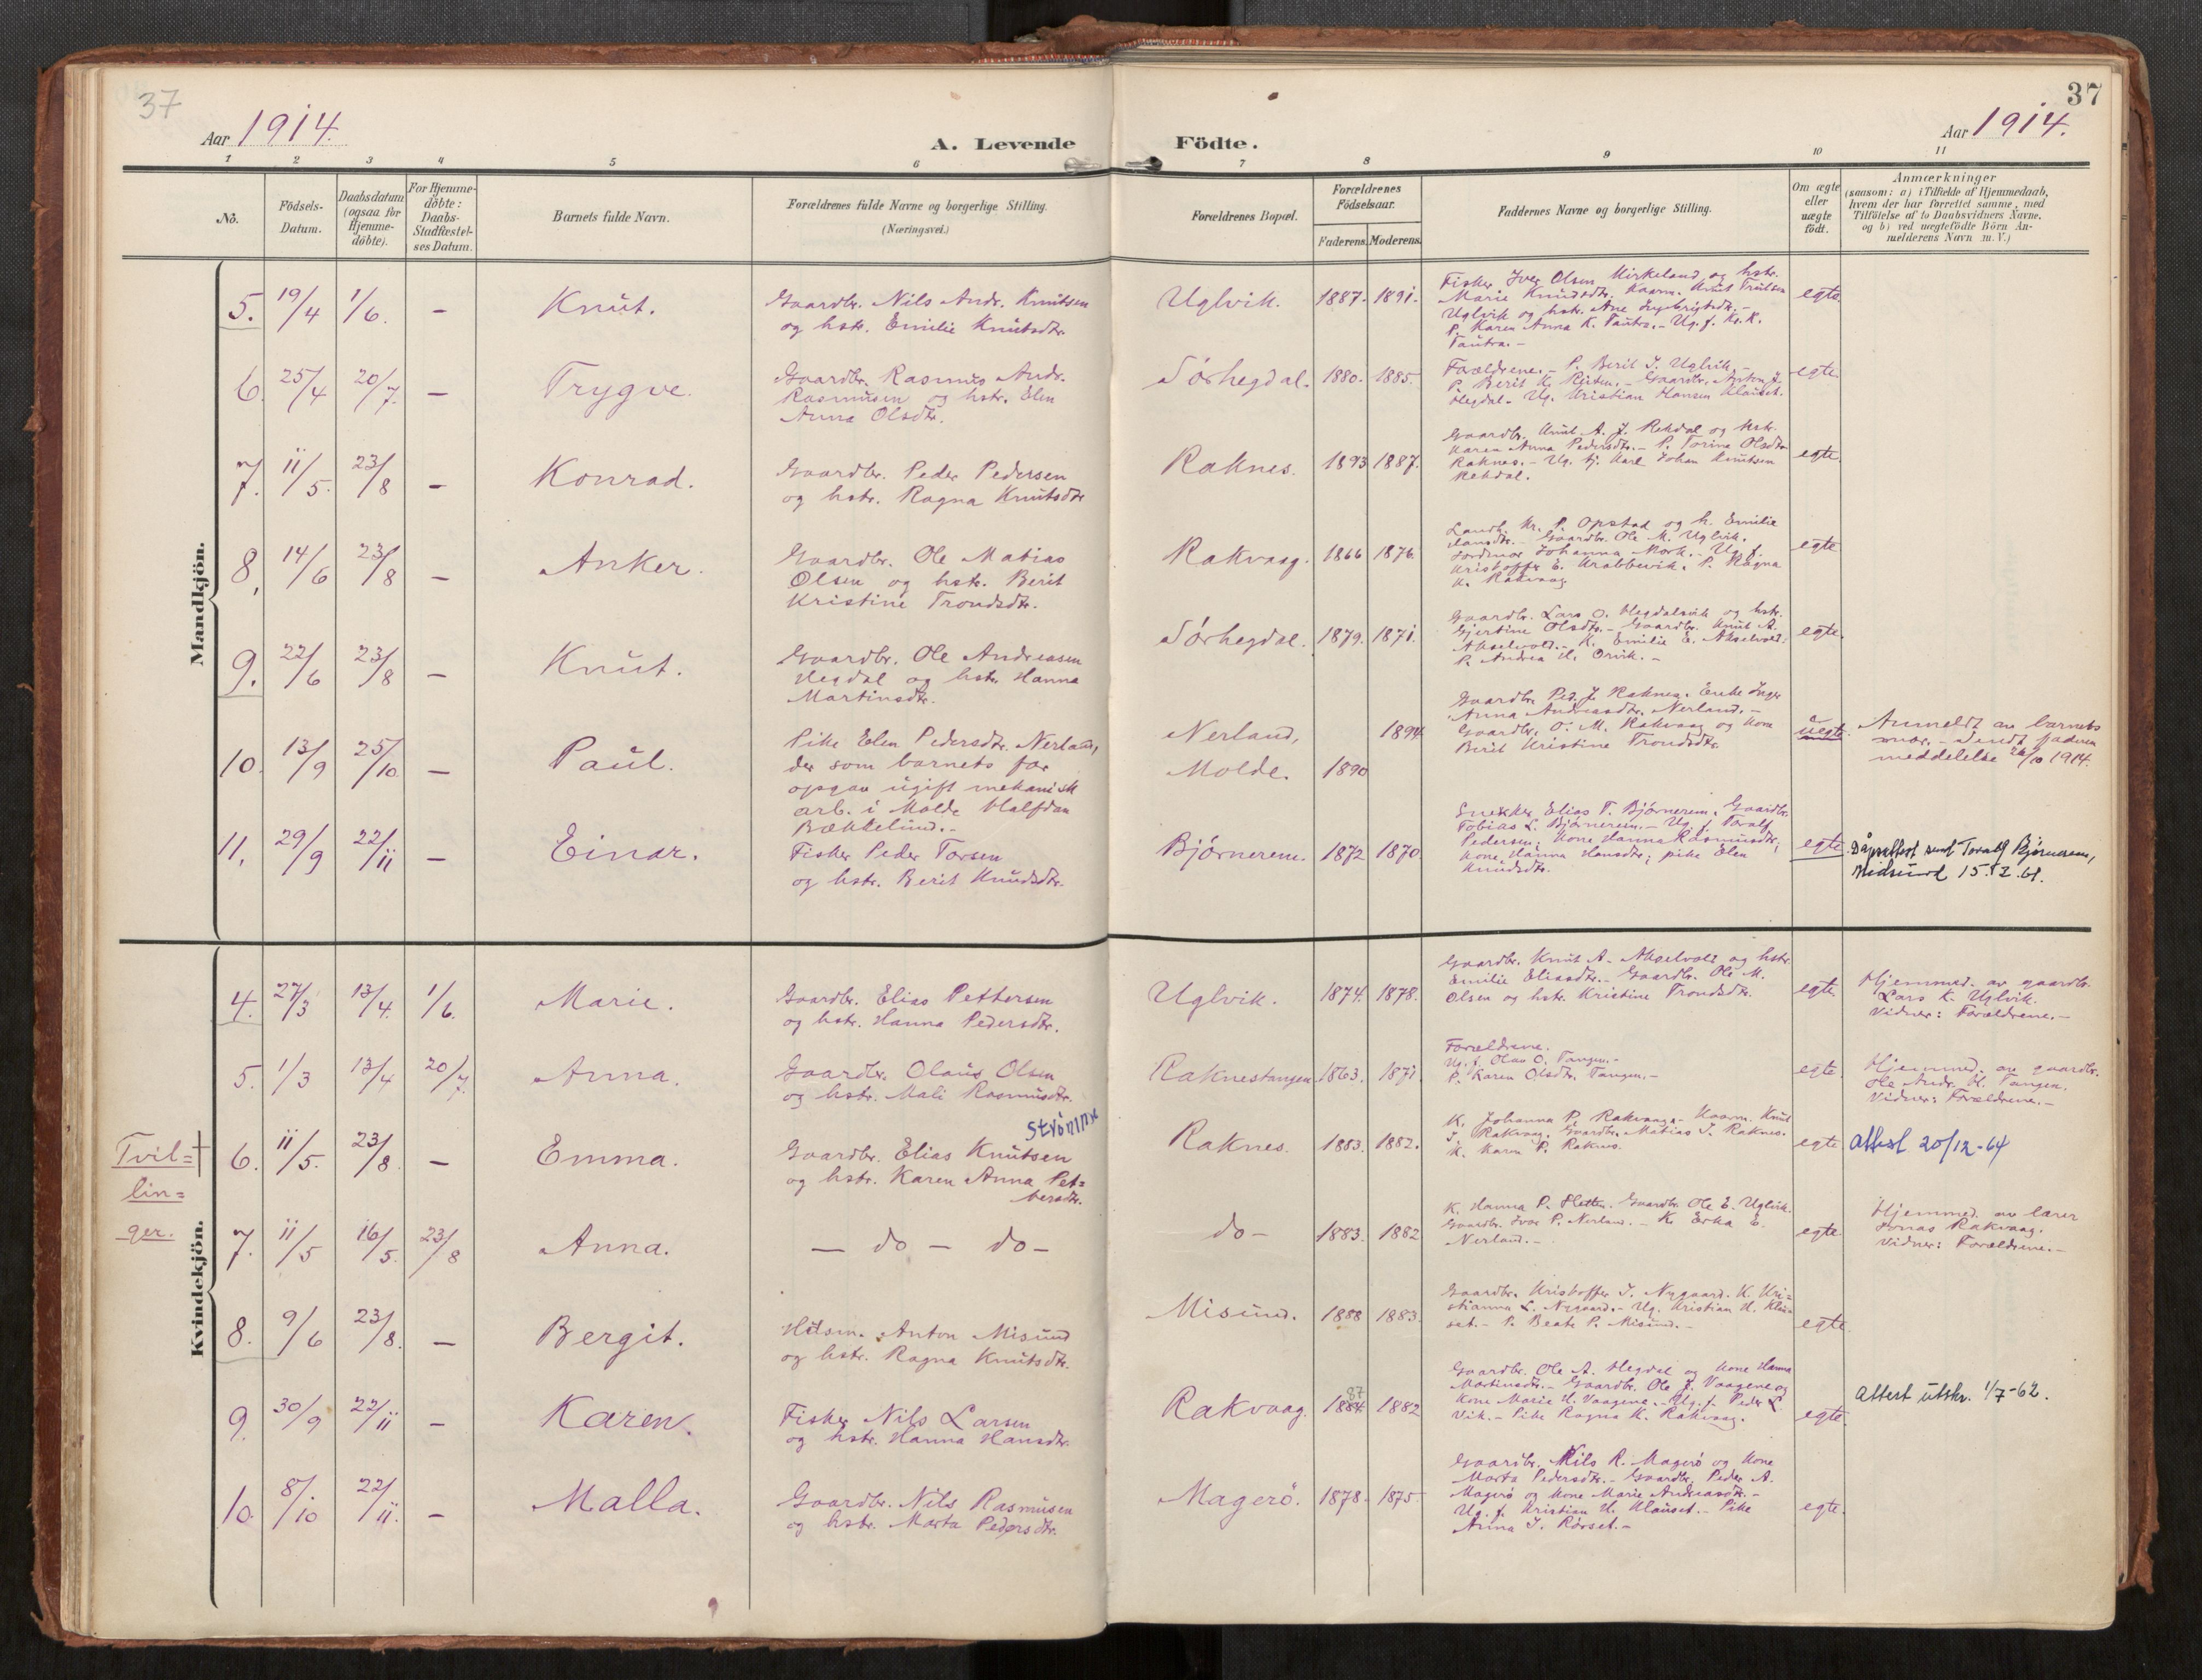 37
37
Aar 1914.
A. Levende Födte.
Aar 1914.
1 2 3 4 5 6 7 8 9 10 11
No.
Födsels-
Datum.
Daabsdatum
(ogsaa for
Hjemme-
döbte).
For Hjemme-
döbte:
Daabs-
Stadfæstel-
ses Datum.
Barnets fulde Navn.
Forældrenes fulde Navne og borgerlige Stilling.
(Næringsvei.)
Forældrenes Bopæl.
Forældrenes
Födselsaar.
Faderens. Moderens.
Faddernes Navne og borgerlige Stilling.
Om ægte
eller
uægte
födt.
Anmærkninger
(saasom: a) i Tilfælde af Hjemmedaab,
hvem der har forrettet samme, med
Tilföielse af to Daabsvidners Navne,
og b) ved uægtefödte Börn An-
melderens Navn m. V.)
Mandkjön.
5. 19/4 1/6. - Knut.
Gaardbr. Nils Andr. Knutsen
og hstr. Emilie Knutsdtr.
Uglvik. 1887. 1891.
Fisker Iver Olsen Mirkeland og hstr.
Marie Knudsdtr. Kaarm. Knut Trulsen
Uglvik og hstr. Ane Ingebrigtsdtr. -
P. Karen Anna K. Tautra. - Ug. f. Kr. K.
Tautra. -
egte.
6. 25/4 20/7. - Trygve.
Gaardbr. Rasmus Andr.
Rasmusen og hstr. Elen
Anna Olsdtr.
Sörhegdal. 1880. 1885.
Forældrene. - P. Berit J. Uglvik. -
P. Berit K. - Gaardbr. Anton J.
Hegdal. Ug. Kristian Hansen Klauset.
egte.
7. 11/5. 23/8 - Konrad.
Gaardbr. Peder Pedersen
og hstr. Ragna Knutsdtr
Raknes. 1893 1887.
Gaardbr. Knut A. J. Rekdal og hstr.
Karen Anna Pedersdtr. - P. Torine Olsdtr
Raknes. - Ug. tj. Karl Johan Knutsen
Rekdal.
egte.
8. 14/6 23/8 - Anker.
Gaardbr. Ole Matias
Olsen og hstr. Berit
Kristine Trondsdtr.
Rakvaag. 1866 1876.
Landh. Kr. P. Opstad og h. Emilie
Hansdtr. - Gaardbr. Ole M. Uglvik.
Jordmor Johanna Mork. - Ug. f.
Kristoffer E. Krabbevik. P. Ragna
K. Rakvaag
egte
9. 22/6 23/8 - Knut.
Gaardbr. Ole Andreasen
Hegdal og hstr. Hanna
Martinsdtr.
Sörhegdal. 1879. 1871.
Gaardbr. Lars O. Hegdalsvik og hstr.
Gjertine Olsdtr. - Gaardbr. Knut A.
Akselvold. - K. Emilie E. Akselvold.
P. Andrea H. Orvik. -
egte.
10. 13/9 25/10. - Paul.
Pike Elen Pedersdtr. Nerland,
der som barnets far
opgav ugift mekanisk
arb. i Molde Halfdan
Bækkelund. -
Nerland, 1894
Molde. 1890
Gaardbr. Ped. J. Raknes. Enke Inger
Anna Andreasdtr. Nerland. -
Gaardbr. O. M. Rakvaag og kone
Berit Kristine Trondsdtr.
uegte.
Anmeldt av barnets
mor. - Sendt faderen
meddelelse 26/10 1914.
11. 29/9 22/11 - Einar.
Fisker Peder Torsen
og hstr. Berit Knudsdtr.
Björnerem. 1872 1870
Snekker Elias T. Björnerem. Gaardbr.
Tobias L. Björnerem. - Ug. f. Toralf
Pedersen; kone Hanna Rasmusdtr;
kone Hanna Hansdtr; pike Elen
Knudsdtr.
egte.
Dåpsattest sendt Toralf Bjørnerem,
Midsund 15.12.61.
Kvindekjön.
4. 27/3 13/4. 1/6. Marie.
Gaardbr. Elias Pettersen
og hstr. Hanna Pedersdtr.
Uglvik. 1874. 1878.
Gaardbr. Knut A. Akselvold og hstr.
Emilie Eliasdtr. - Gaardbr. Ole M.
Olsen og hstr. Kristine Trondsdtr.
egte
Hjemmed. av gaardbr.
Lars K. Uglvik.
Vidner: Forældrene. -
5. 1/3 13/4 20/7. Anna.
Gaardbr. Olaus Olsen
og hstr. Mali Rasmusdtr.
Raknestangen. 1863. 1871.
Forældrene.
Ug. f. Olav O. Tangen. -
P. Karen Olsdtr. Tangen. -
egte.
Hjemmed. av gaardbr.
Ole Andr. H. Tangen.
Vidner: Forældrene. -
Tvil=
lin=
ger.
6. 11/5. 23/8. - Emma.
Strömme
Gaardbr. Elias Knutsen
og hstr. Karen Anna Pet=
tersdtr.
Raknes. 1883. 1882.
K. Johanna P. Rakvaag. - Kaarm. Knut
J. Rakvaag. Gaardbr. Matias J. Raknes.
K. Karen P. Raknes.
egte
Attest 20/12-64
7. 11/5 16/5. 23/8 Anna.
- do - do -
do - 1883. 1882
K. Hanna P. Sletten. Gaardbr. Ole E. Uglvik.
Gaardbr. Ivar P. Nerland. - K. Erika E.
Nerland. -
egte
Hjemmed. av lærer
Jonas Rakvaag.
Vidner: Forældrene. -
8. 9/6 23/8. - Bergit.
Husm. Anton Misund
og hstr. Ragna Knutsdtr.
Misund. 1888 1883.
Gaardbr. Kristoffer J. Nygaard. K. Kri=
stianna L. Nygaard. - Ug. Kristian H. Klau
set. - P. Beate P. Misund. -
egte.
9. 30/9 22/11 - Karen.
Fisker Nils Larsen
og hstr. Hanna Hansdtr.
87
Rakvaag. 1884 1882
Gaardbr. Ole A. Hegdal og kone Hanna
Martinsdtr. - Gaardbr. Ole J. Vaagene og
kone Marie H. Vaagene. - Ug. f. Peder L.
Vik. - Pike Ragna K. Rakvaag.
egte.
Attest utskr. 1/7-62.
10. 8/10 22/11. - Malla.
Gaardbr. Nils Rasmusen
og hstr. Marta Pedersdtr.
Magerö. 1878. 1875.
Gaardbr. Nils R. Magerö og kone
Marta Pedersdtr. - Gaardbr. Peder A.
Magerö og kone Marie Andreasdtr. -
Ug. f. Kristian H. Klauset. - Pike
Anna J. Rörset. -
egte.